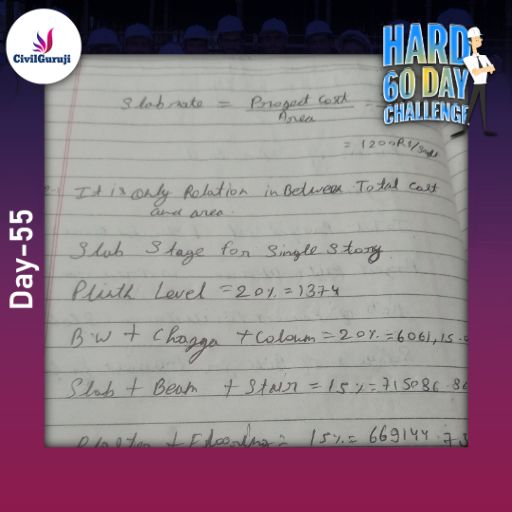 CivilGuruji
HARD
60 DAY
CHALLENGE
Day-55
Slab rate = Project Cost / Area =
= 1200Rs/
It is only Relation in Between Total cost
and area.
Slab Stage for Single Story
Plinth Level = 20% = 1374
B.W + Chagga + Coloum = 20% = 6061,15.
Slab + Beam + Stair = 15% = 715086.86
15% = 669144.75